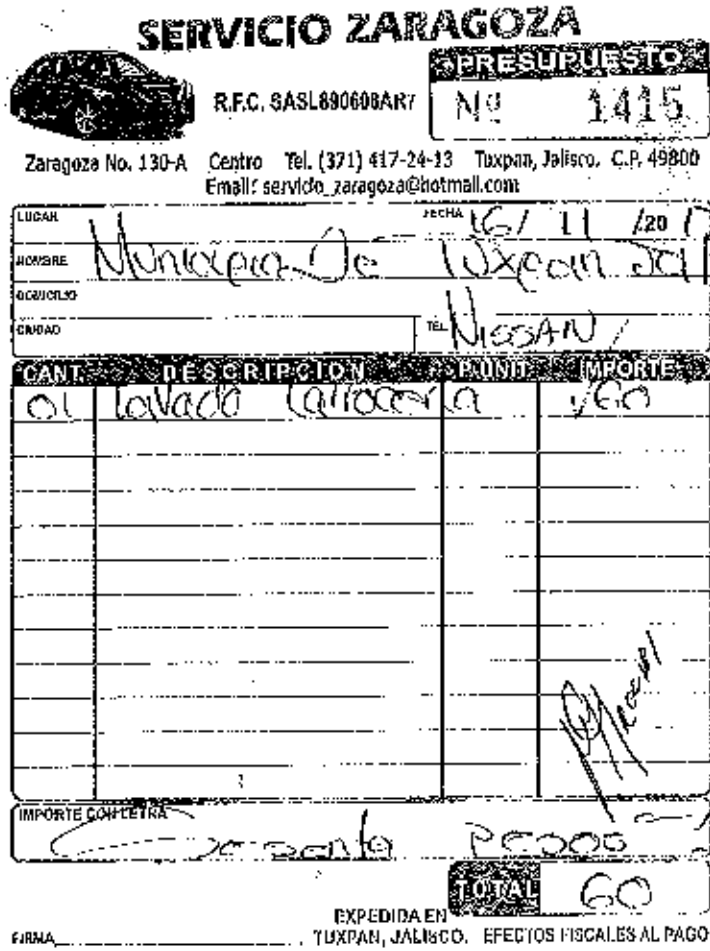 SERVICIO ZARAGOZA
PRESUPUESTO
R.F.C. SASL890608AR7
Nº 1415
Zaragoza No. 130-A Centro Tel. (371) 417-24-13 Tuxpan, Jalisco. C.P. 49800
Email: servicio_zaragoza@hotmail.com
LUGAR FECHA 16/ 11 /20 17
NOMBRE Municipio De Tuxpan Jal
DOMICILIO
CIUDAD TEL. NISSAN
CANT. DESCRIPCION P. UNIT. IMPORTE
01 Lavado Carroceria 60
IMPORTE CON LETRA
Sesenta Pesos
TOTAL 60
EXPEDIDA EN
FIRMA TUXPAN, JALISCO. EFECTOS FISCALES AL PAGO